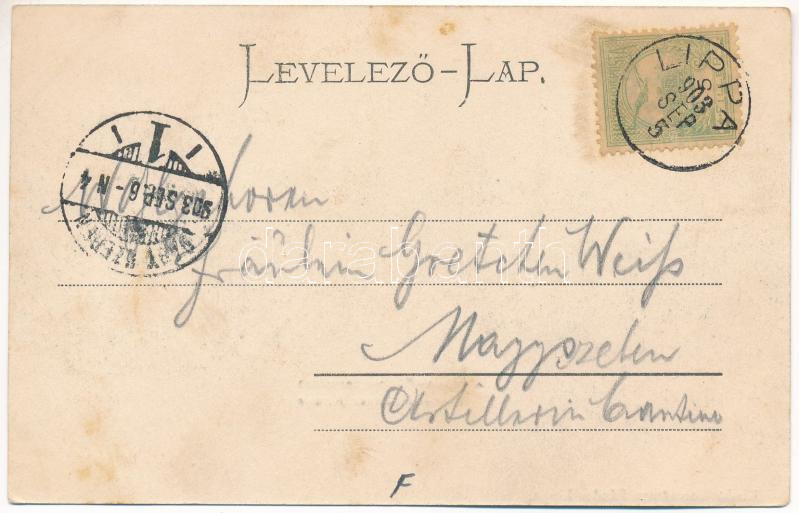 LEVELEZŐ-LAP.
LIPPA
903
SEP
5
903 SEP. 6 - N 4
1
Wohlgeboren
Fräulein Gretchen Weiß
Nagyszeben
Artillerie Cantine
F
darabanth